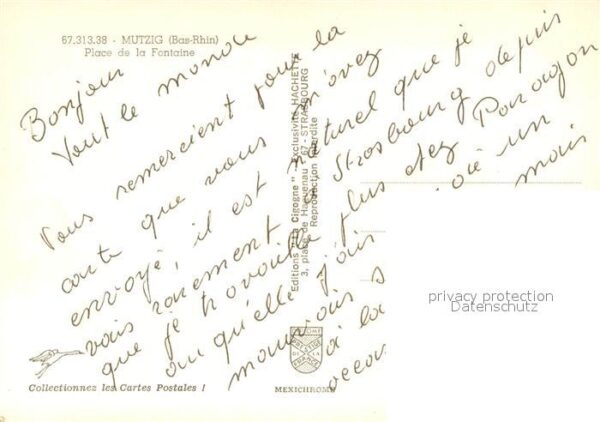 67.313.38 - MUTZIG (Bas-Rhin)
Place de la Fontaine
Bonjour
tout le monde
Vous remercient pour la
carte que vous m'avez
envoyé, il est naturel que je
vais rarement à Strasbourg depuis
que je travaille plus chez
ou qu'elle j'ais où un
mauvais mais
à la
Editions "La Cigogne" - Exclusivité HACHETTE
3, place de Haguenau - 67 - STRASBOURG
Reproduction Interdite
privacy protection
Datenschutz
PRESTIGE
DE LA
FRANCE
Collectionnez les Cartes Postales !
MEXICHROME